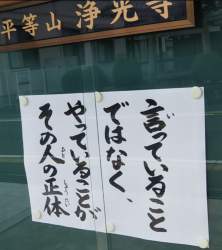 平等山 浄光寺
言っていること
ではなく、
やっていることが
その人の正体
ひと
しょうたい